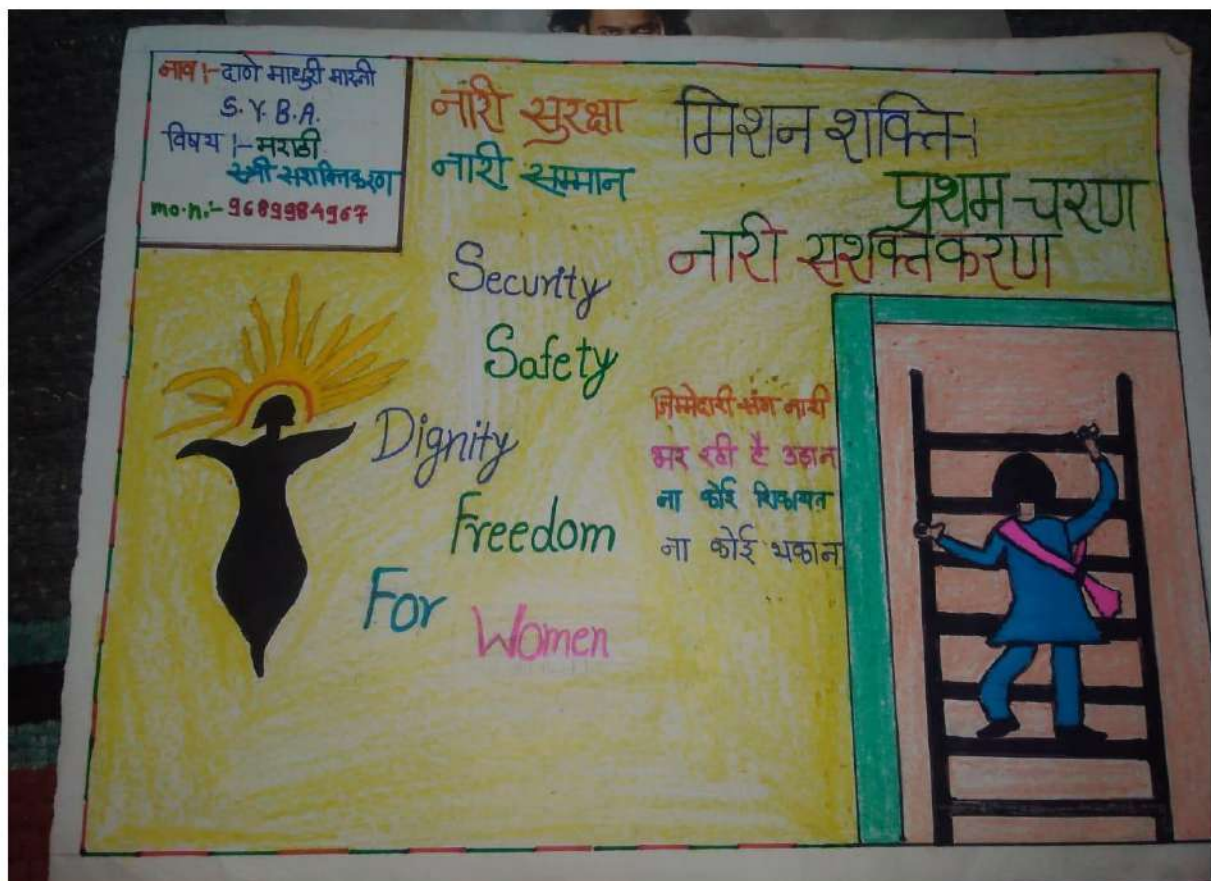 नाव :- दाणे माधुरी मारुती
S.Y.B.A.
विषय :- मराठी
स्त्री सशक्तिकरण
mo.n.:- 9689984967
नारी सुरक्षा
नारी सम्मान
मिशन शक्ति-।
प्रथम चरण
नारी सशक्तिकरण
Security
Safety
Dignity
Freedom
For
Women
जिम्मेदारी संग नारी
भर रही है उड़ान
ना कोई शिकायत
ना कोई थकान